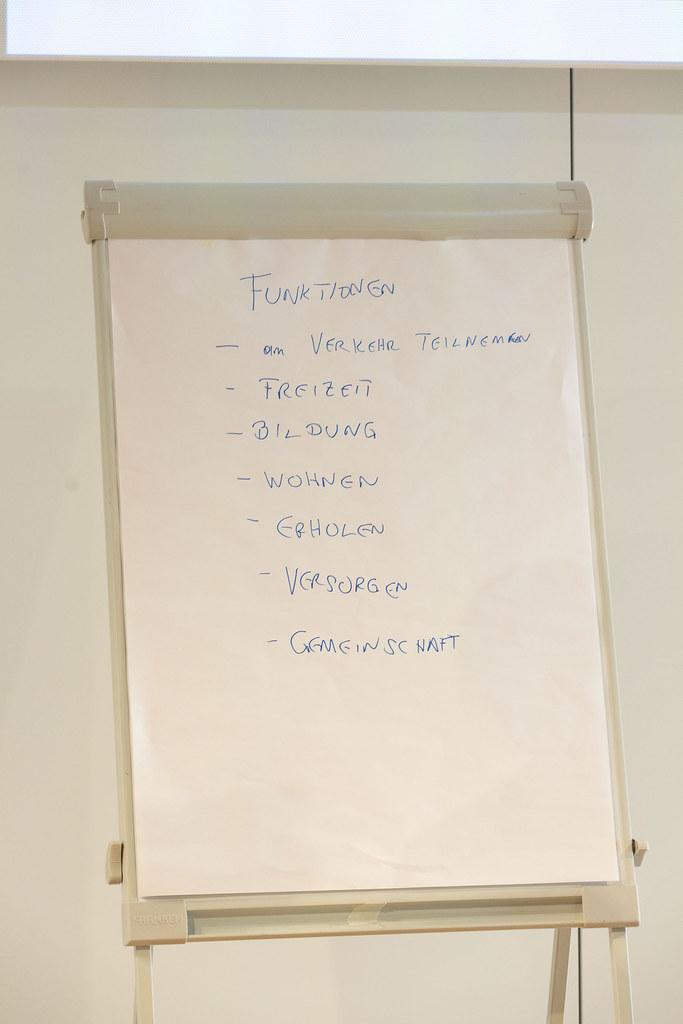 FUNKTIONEN
- am VERKEHR TEILNEMEN
- FREIZEIT
- BILDUNG
- WOHNEN
- ERHOLEN
- VERSORGEN
- GEMEINSCHAFT
FRANKEN